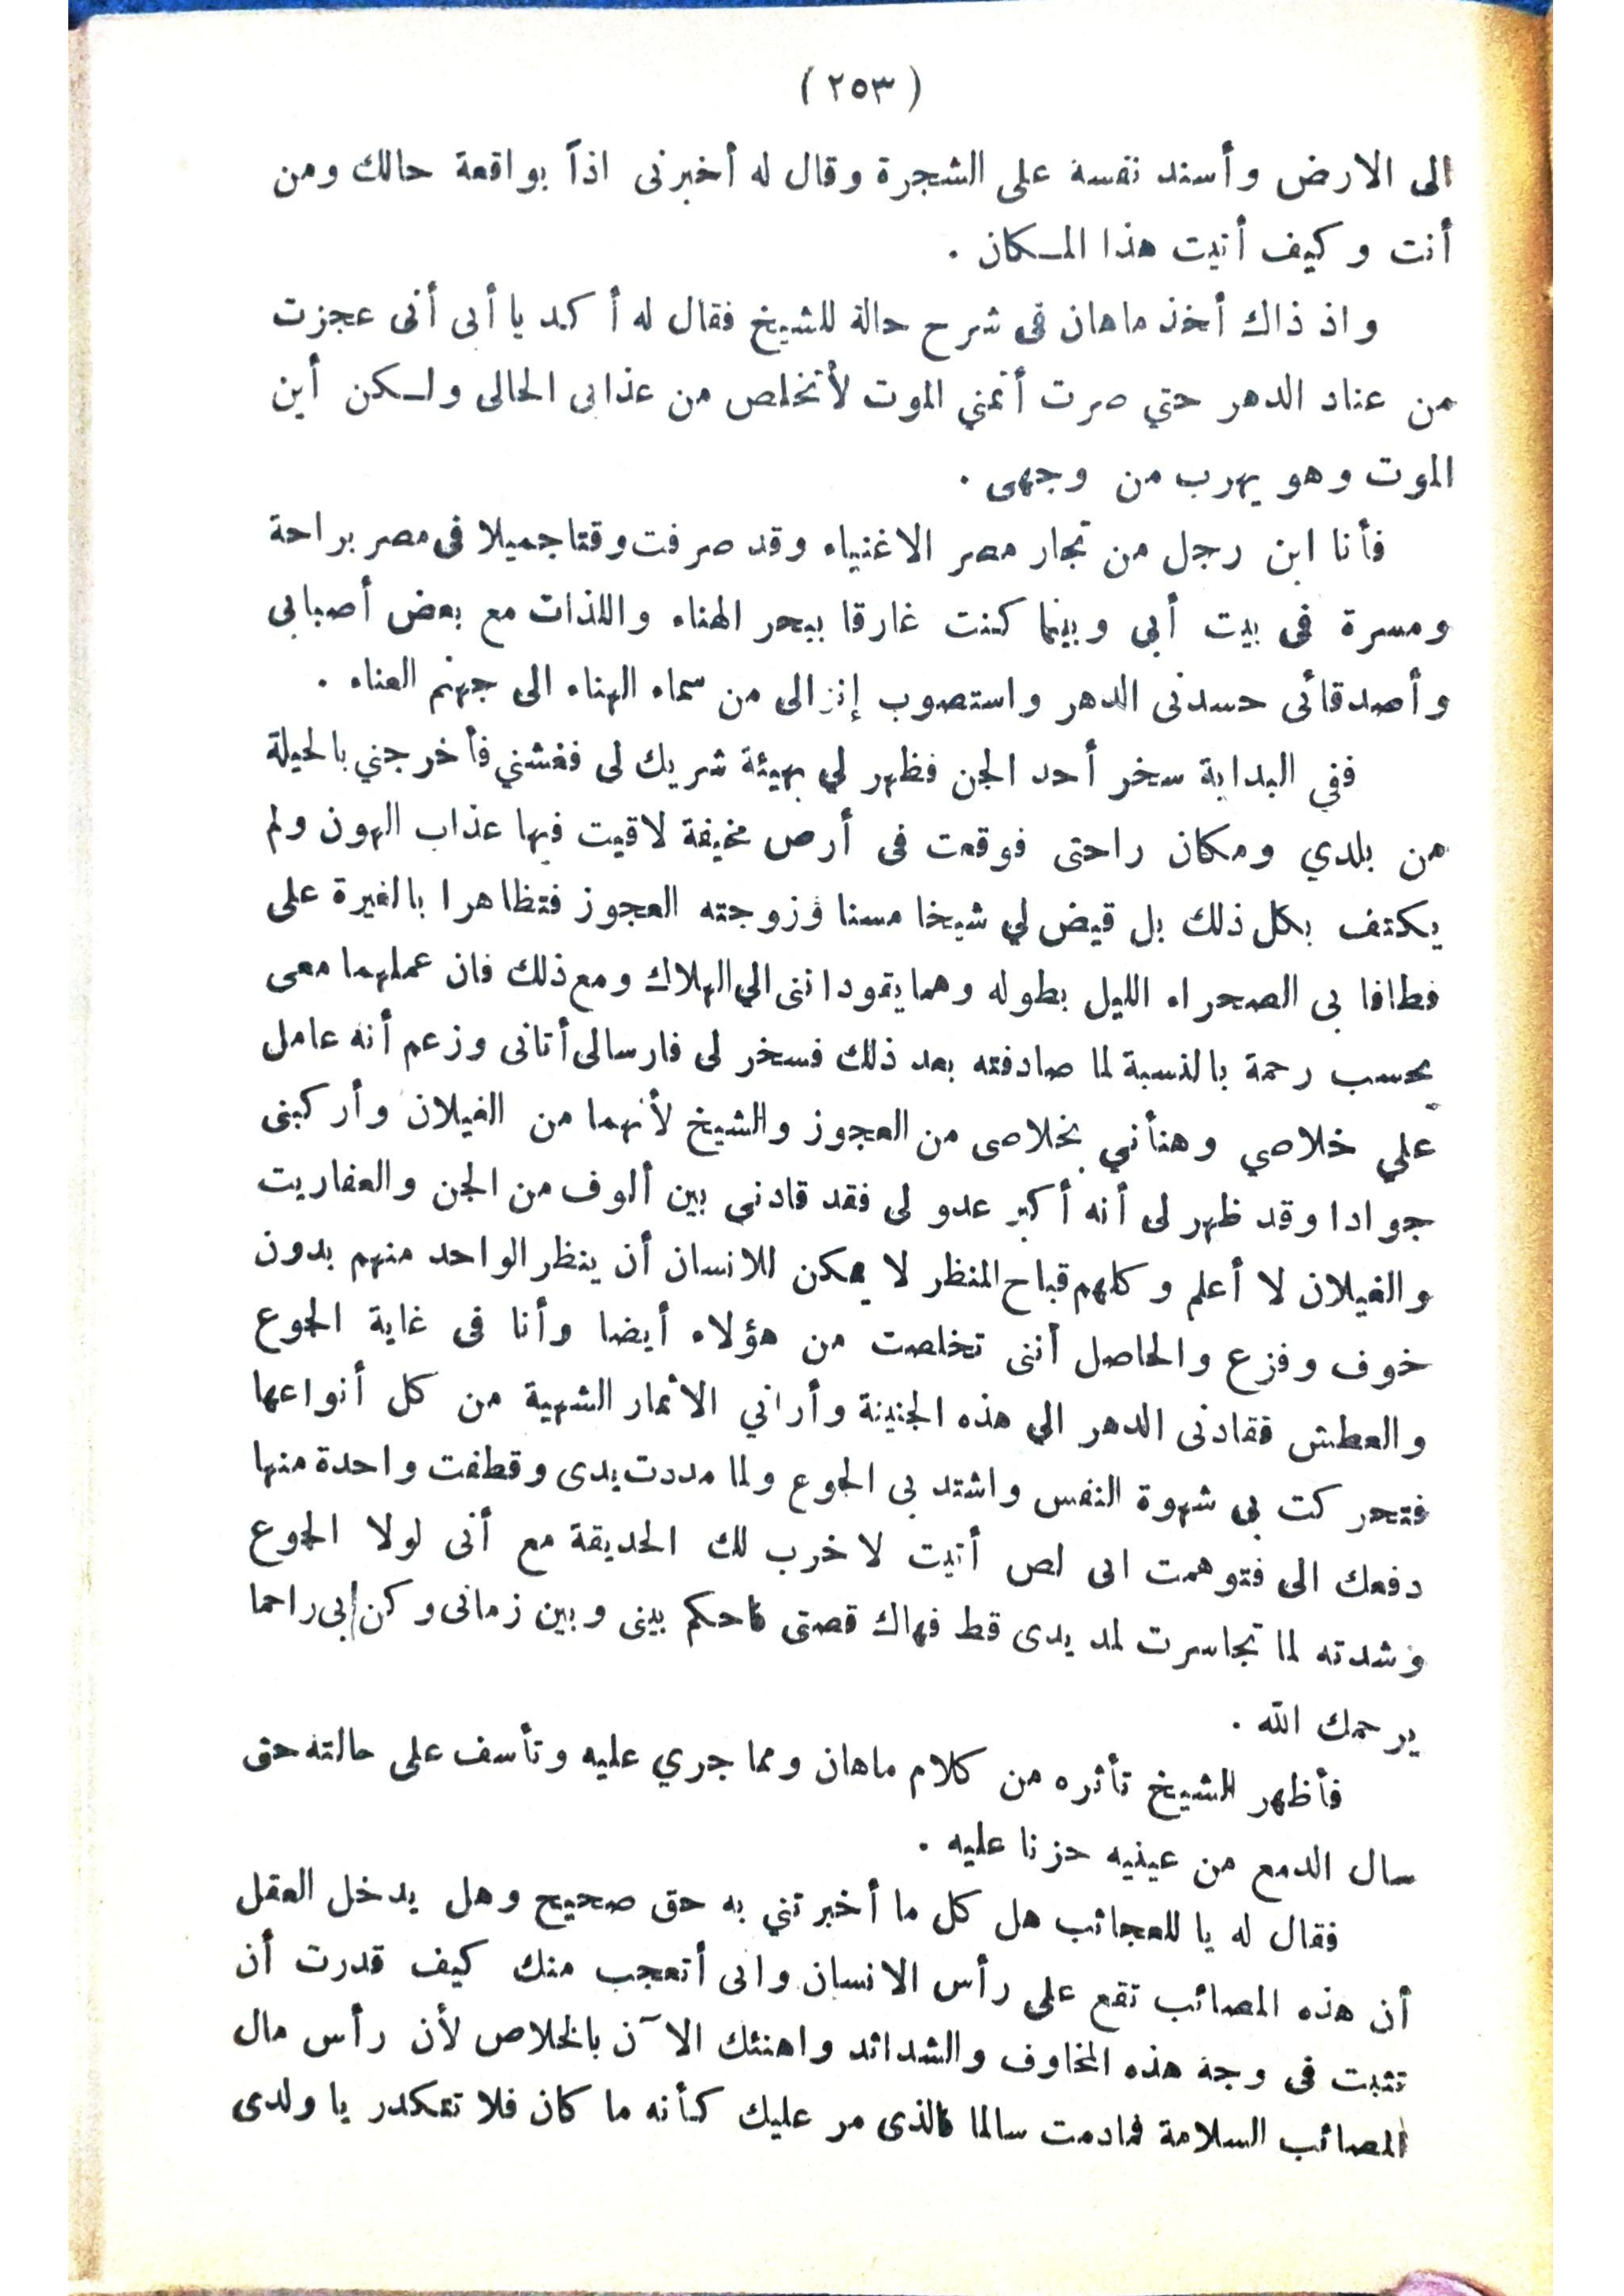 ( ٢٥٣ )
الى الارض وأسند نفسه على الشجرة وقال له أخبرنى اذاً بواقعة حالك ومن
أنت وكيف أتيت هذا المكان .
واذ ذاك أخذ ماهان فى شرح حالة للشيخ فقال له أكد يا أبى أنى عجزت
من عناد الدهر حتي صرت أتمني الموت لأتخلص من عذابى الحالى ولكن أين
الموت وهو يهرب من وجهى .
فأنا ابن رجل من تجار مصر الاغنياء وقد صرفت وقتا جميلا فى مصر براحة
ومسرة فى بيت أبى وبينما كنت غارقا ببحر الهناء واللذات مع بعض أصبابى
وأصدقائى حسدنى الدهر واستصوب إنزالى من سماء الهناء الى جهنم العناء .
ففي البداية سخر أحد الجن فظهر لي بهيئة شريك لى فغشني فأخرجني بالحيلة
من بلدي ومكان راحتى فوقعت فى أرض مخيفة لاقيت فيها عذاب الهون ولم
يكتف بكل ذلك بل قيض لي شيخا مسنا وزوجته العجوز فتظاهرا بالغيرة على
فطافا بى الصحراء الليل بطوله وهما يقودانى الي الهلاك ومع ذلك فان عملهما معى
يحسب رحمة بالنسبة لما صادفته بعد ذلك فسخر لى فارسا لى أتانى وزعم أنه عامل
علي خلاصي وهنأني بخلاصى من العجوز والشيخ لأنهما من الغيلان وأركبنى
جوادا وقد ظهر لى أنه أكبر عدو لى فقد قادنى بين ألوف من الجن والعفاريت
والغيلان لا أعلم وكلهم قباح المنظر لا يمكن للانسان أن ينظر الواحد منهم بدون
خوف وفزع والحاصل أننى تخلصت من هؤلاء أيضا وأنا فى غاية الجوع
والعطش فقادنى الدهر الي هذه الجنينة وأراني الاثمار الشهية من كل أنواعها
فتحركت بى شهوة النفس واشتد بى الجوع ولما مددت يدى وقطفت واحدة منها
دفعك الى فتوهمت انى لص أتيت لاخرب لك الحديقة مع أنى لولا الجوع
وشدته لما تجاسرت لمد يدى قط فهاك قصتى فاحكم بينى وبين زمانى وكن بى راحما
يرحمك الله .
فأظهر الشيخ تأثره من كلام ماهان ومما جري عليه وتأسف على حالته حتى
سال الدمع من عينيه حزنا عليه .
فقال له يا للعجائب هل كل ما أخبرتني به حق صحيح وهل يدخل العقل
أن هذه المصائب تقع على رأس الانسان وانى أتعجب منك كيف قدرت أن
تثبت فى وجه هذه المخاوف والشدائد واهنئك الآن بالخلاص لأن رأس مال
المصائب السلامة فمادمت سالما فالذى مر عليك كأنه ما كان فلا تتكدر يا ولدى